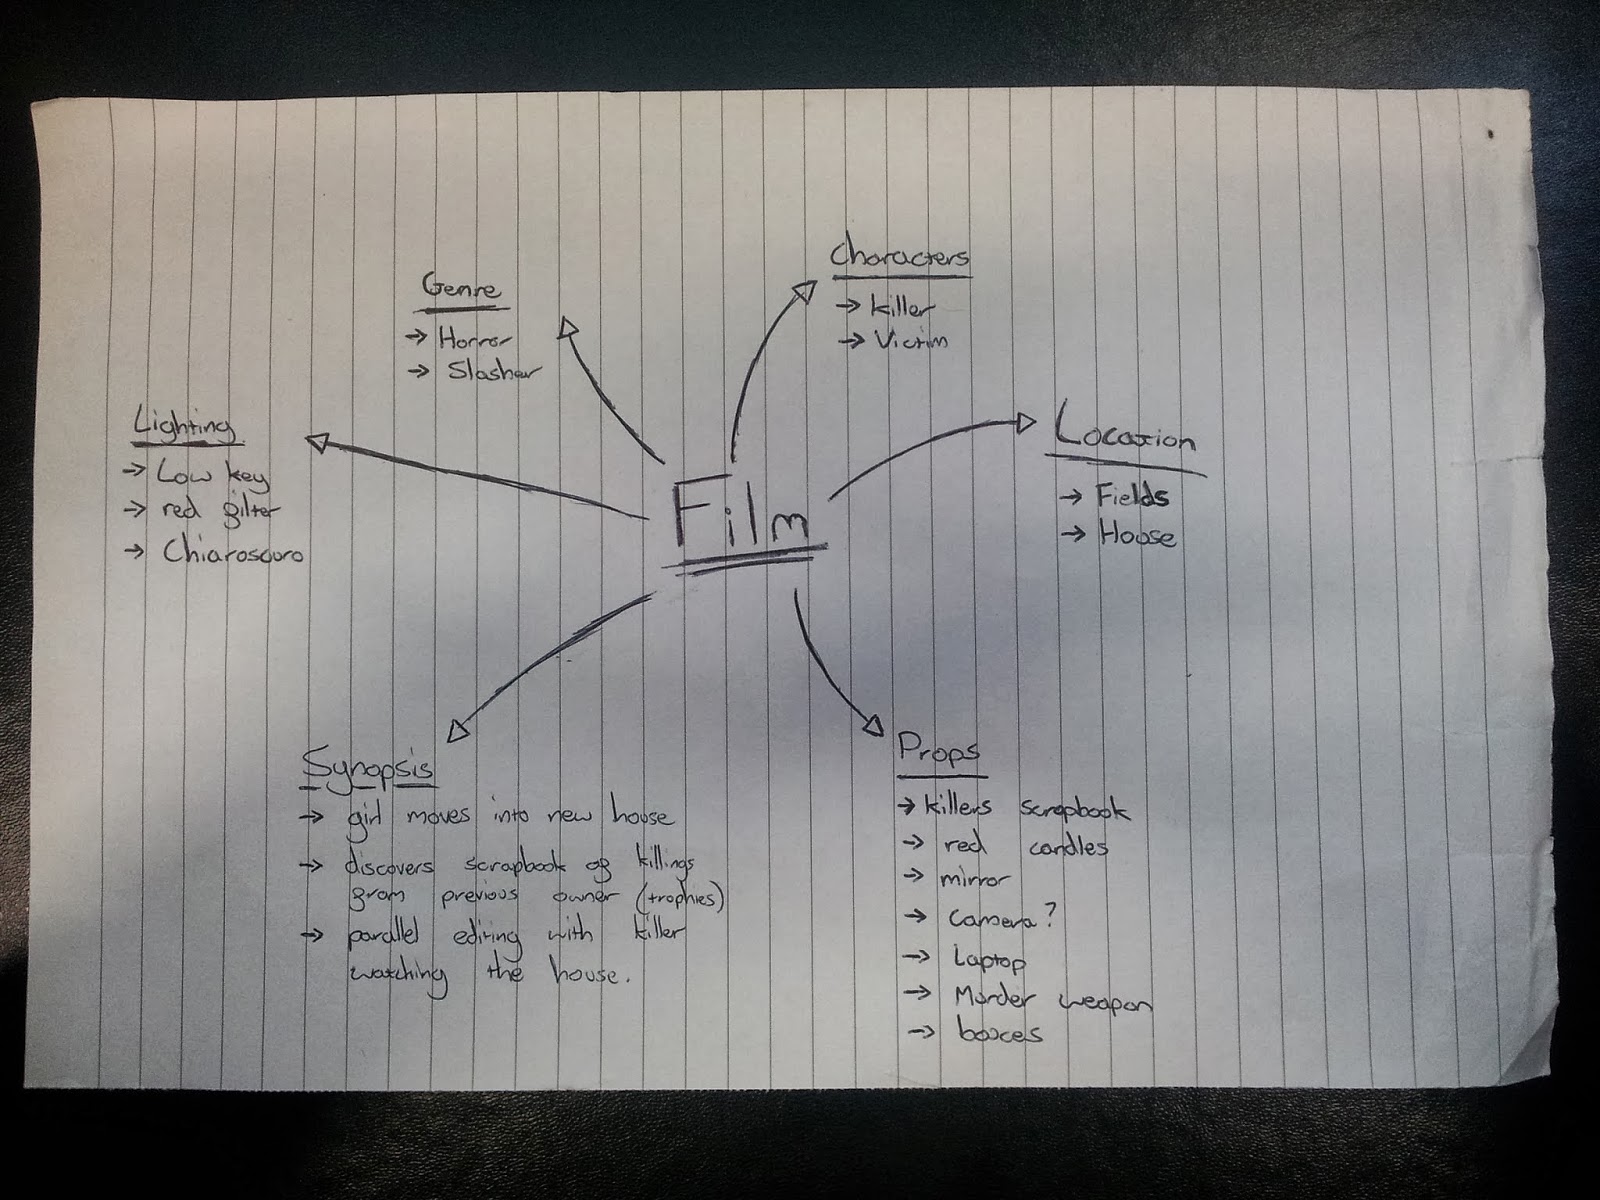 Film
Genre
→ Horror
→ Slasher
Characters
→ Killer
→ Victim
Location
→ Fields
→ House
Props
→ killers scrapbook
→ red candles
→ mirror
→ camera?
→ Laptop
→ Murder weapon
→ boxes
Synopsis
→ girl moves into new house
→ discovers scrapbook of killings
from previous owner (trophies)
→ parallel editing with killer
watching the house.
Lighting
→ Low key
→ red filter
→ Chiaroscuro